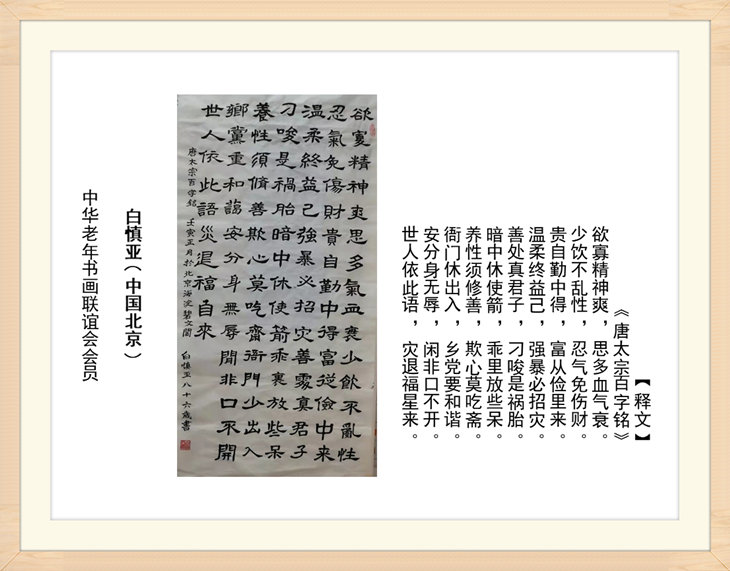 【释文】
《唐太宗百字铭》
欲寡精神爽，思多血气衰。
少饮不乱性，忍气免伤财。
贵自勤中得，富从俭里来。
温柔终益己，强暴必招灾。
善处真君子，刁唆是祸胎。
暗中休使箭，乖里放些呆。
养性须修善，欺心莫吃斋。
衙门休出入，乡党要和谐。
安分身无辱，闲非口不开。
世人依此语，灾退福星来。
欲寡精神爽思多氣血衰少飲不亂性
忍氣免傷財貴自勤中得富從儉中来
温柔終益己強暴必招灾善處真君子
刁唆是禍胎暗中休使箭乖裏放些呆
養性須脩善欺心莫吃齋衙門少出入
鄉黨重和諧安分身無辱閒非口不開
世人依此語災退福自来
唐太宗百字銘 壬寅正月於北京海淀碧文閣 白慎亚八十六歲書
白慎亚（中国北京）
中华老年书画联谊会会员